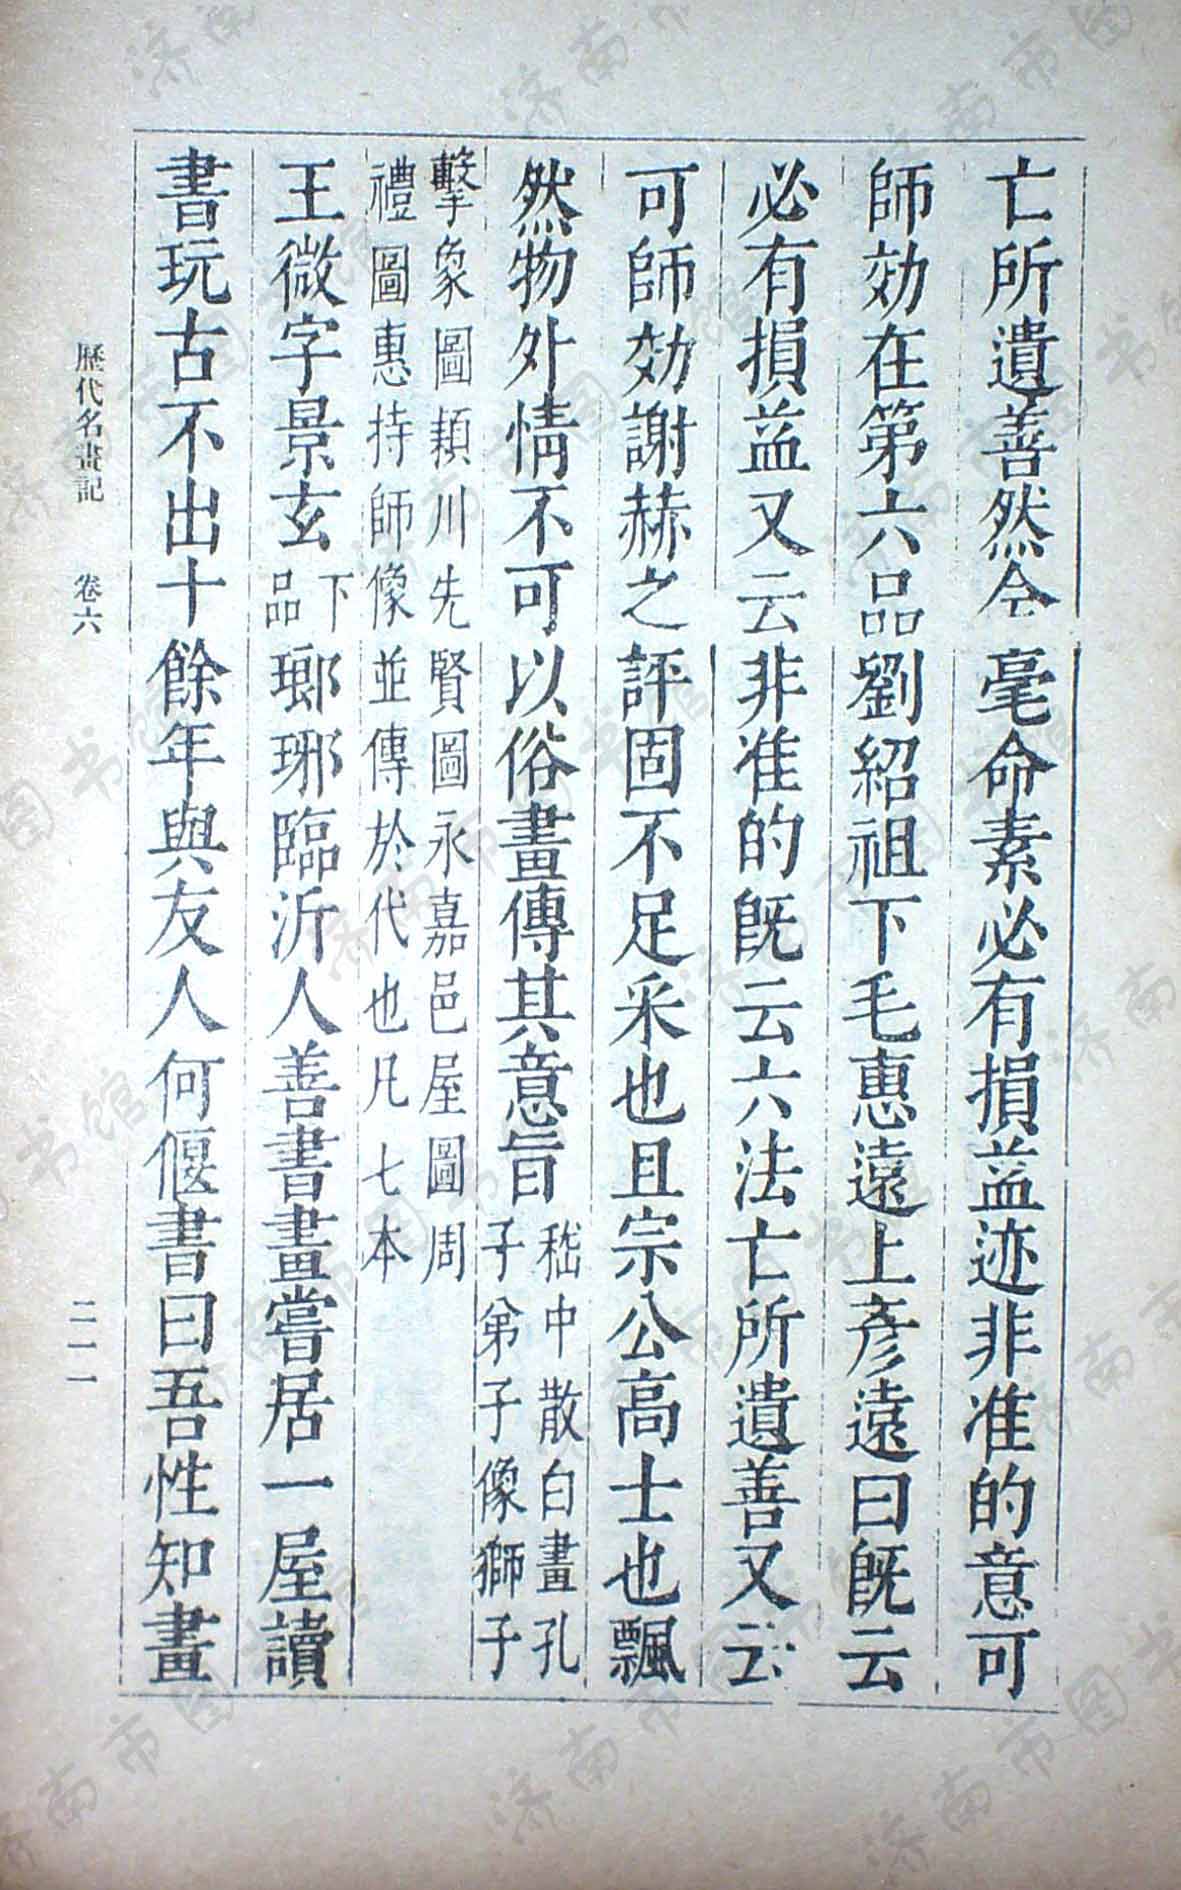 亡所遺善然含毫命素必有損益迹非准的意可
師効在第六品劉紹祖下毛惠遠上彥遠曰既云
必有損益又云非准的既云六法亡所遺善又云
可師効謝赫之評固不足采也且宗公高士也飄
然物外情不可以俗畫傳其意旨
嵇中散白畫孔
子弟子像獅子
擊象圖潁川先賢圖永嘉邑屋圖周
禮圖惠持師像並傳於代也凡七本
王微字景玄下品瑯琊臨沂人善書畫嘗居一屋讀
書玩古不出十餘年與友人何偃書曰吾性知畫
歷代名畫記 卷六 二一一
济南市图书馆